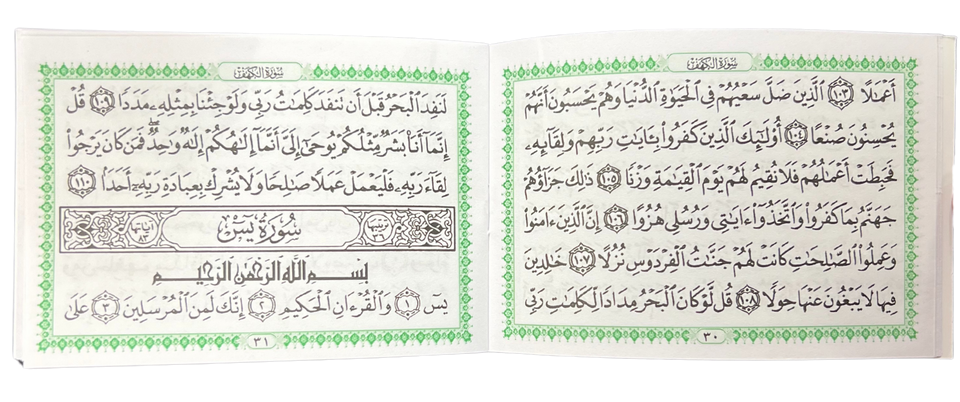 سورة الكهف
أَعْمَٰلًا ١٠٣ ٱلَّذِينَ ضَلَّ سَعْيُهُمْ فِى ٱلْحَيَوٰةِ ٱلدُّنْيَا وَهُمْ يَحْسَبُونَ أَنَّهُمْ
يُحْسِنُونَ صُنْعًا ١٠٤ أُو۟لَٰٓئِكَ ٱلَّذِينَ كَفَرُوا۟ بِـَٔايَٰتِ رَبِّهِمْ وَلِقَآئِهِۦ
فَحَبِطَتْ أَعْمَٰلُهُمْ فَلَا نُقِيمُ لَهُمْ يَوْمَ ٱلْقِيَٰمَةِ وَزْنًا ١٠٥ ذَٰلِكَ جَزَآؤُهُمْ
جَهَنَّمُ بِمَا كَفَرُوا۟ وَٱتَّخَذُوٓا۟ ءَايَٰتِى وَرُسُلِى هُزُوًا ١٠٦ إِنَّ ٱلَّذِينَ ءَامَنُوا۟
وَعَمِلُوا۟ ٱلصَّٰلِحَٰتِ كَانَتْ لَهُمْ جَنَّٰتُ ٱلْفِرْدَوْسِ نُزُلًا ١٠٧ خَٰلِدِينَ
فِيهَا لَا يَبْغُونَ عَنْهَا حِوَلًا ١٠٨ قُل لَّوْ كَانَ ٱلْبَحْرُ مِدَادًا لِّكَلِمَٰتِ رَبِّى
٣٠
سورة الكهف
لَنَفِدَ ٱلْبَحْرُ قَبْلَ أَن تَنفَدَ كَلِمَٰتُ رَبِّى وَلَوْ جِئْنَا بِمِثْلِهِۦ مَدَدًا ١٠٩ قُلْ
إِنَّمَآ أَنَا۠ بَشَرٌ مِّثْلُكُمْ يُوحَىٰٓ إِلَىَّ أَنَّمَآ إِلَٰهُكُمْ إِلَٰهٌ وَٰحِدٌ ۖ فَمَن كَانَ يَرْجُوا۟
لِقَآءَ رَبِّهِۦ فَلْيَعْمَلْ عَمَلًا صَٰلِحًا وَلَا يُشْرِكْ بِعِبَادَةِ رَبِّهِۦٓ أَحَدًۢا ١١٠
ترتيبها ٣٦ سُورَةُ يسٓ آياتها ٨٣
بسم الله الرحمن الرحيم
يسٓ ١ وَٱلْقُرْءَانِ ٱلْحَكِيمِ ٢ إِنَّكَ لَمِنَ ٱلْمُرْسَلِينَ ٣ عَلَىٰ
٣١